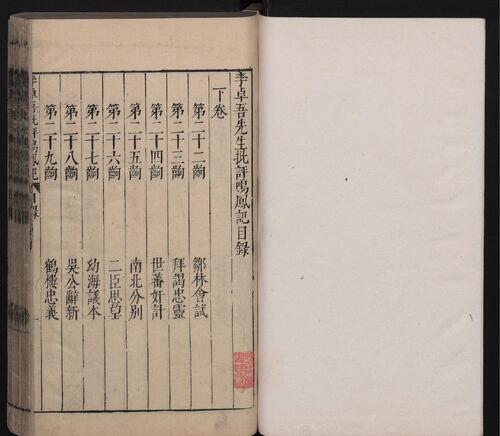 李卓吾先生批評鳴鳳記目錄
下卷
第二十二齣 鄒林會試
第二十三齣 拜謁忠靈
第二十四齣 世蕃奸計
第二十五齣 南北分別
第二十六齣 二臣思望
第二十七齣 幼海議本
第二十八齣 吳公辭新
第二十九齣 鶴樓忠義
李卓吾批評鳴鳳記 目錄 一